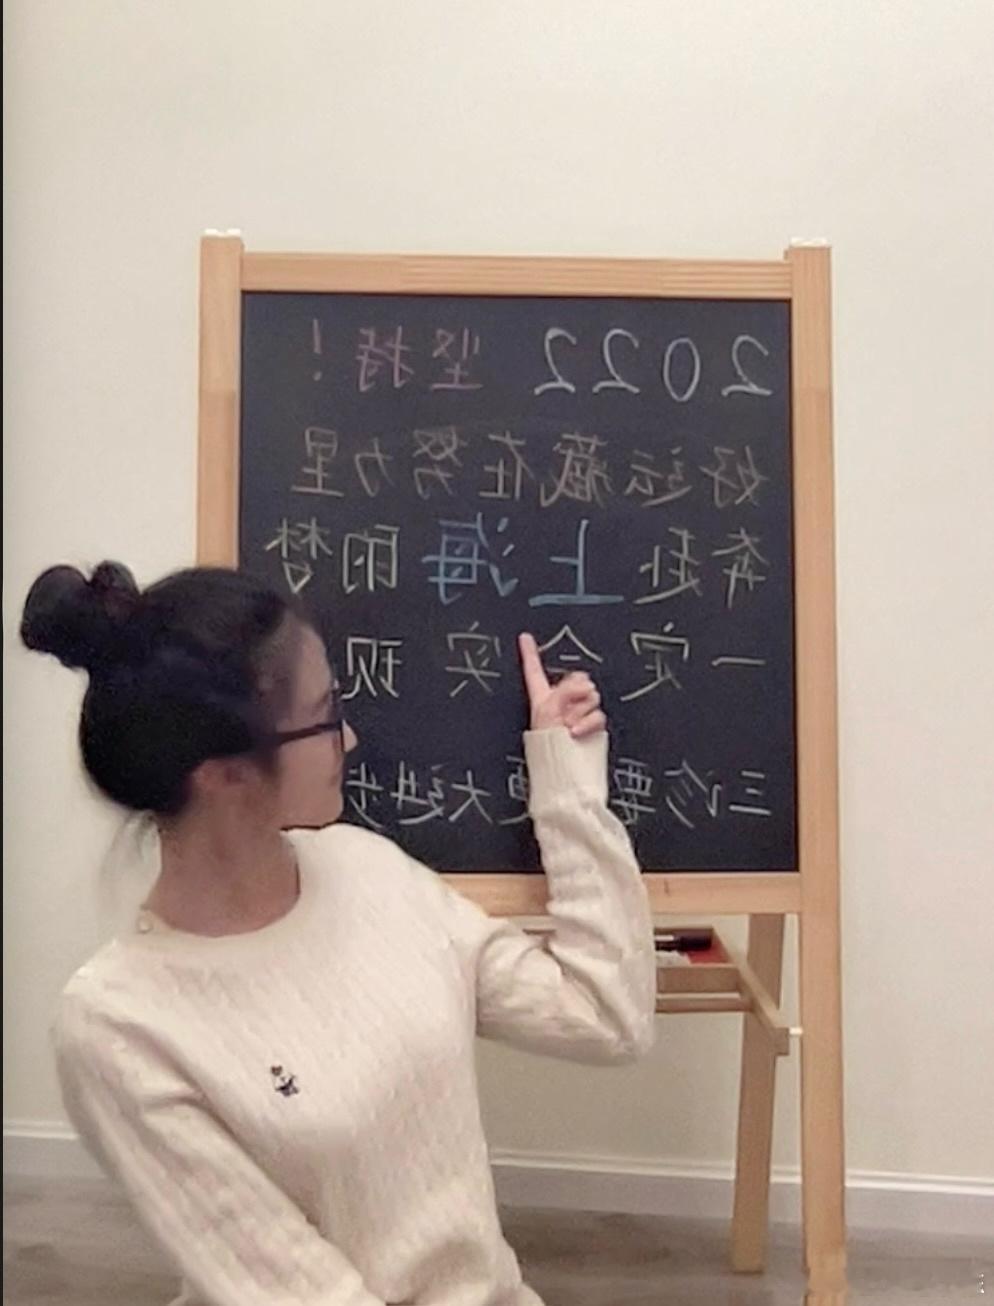 2022 坚持！
好运藏在努力里
奔赴上海的梦
一定会实现
三诊要更大进步